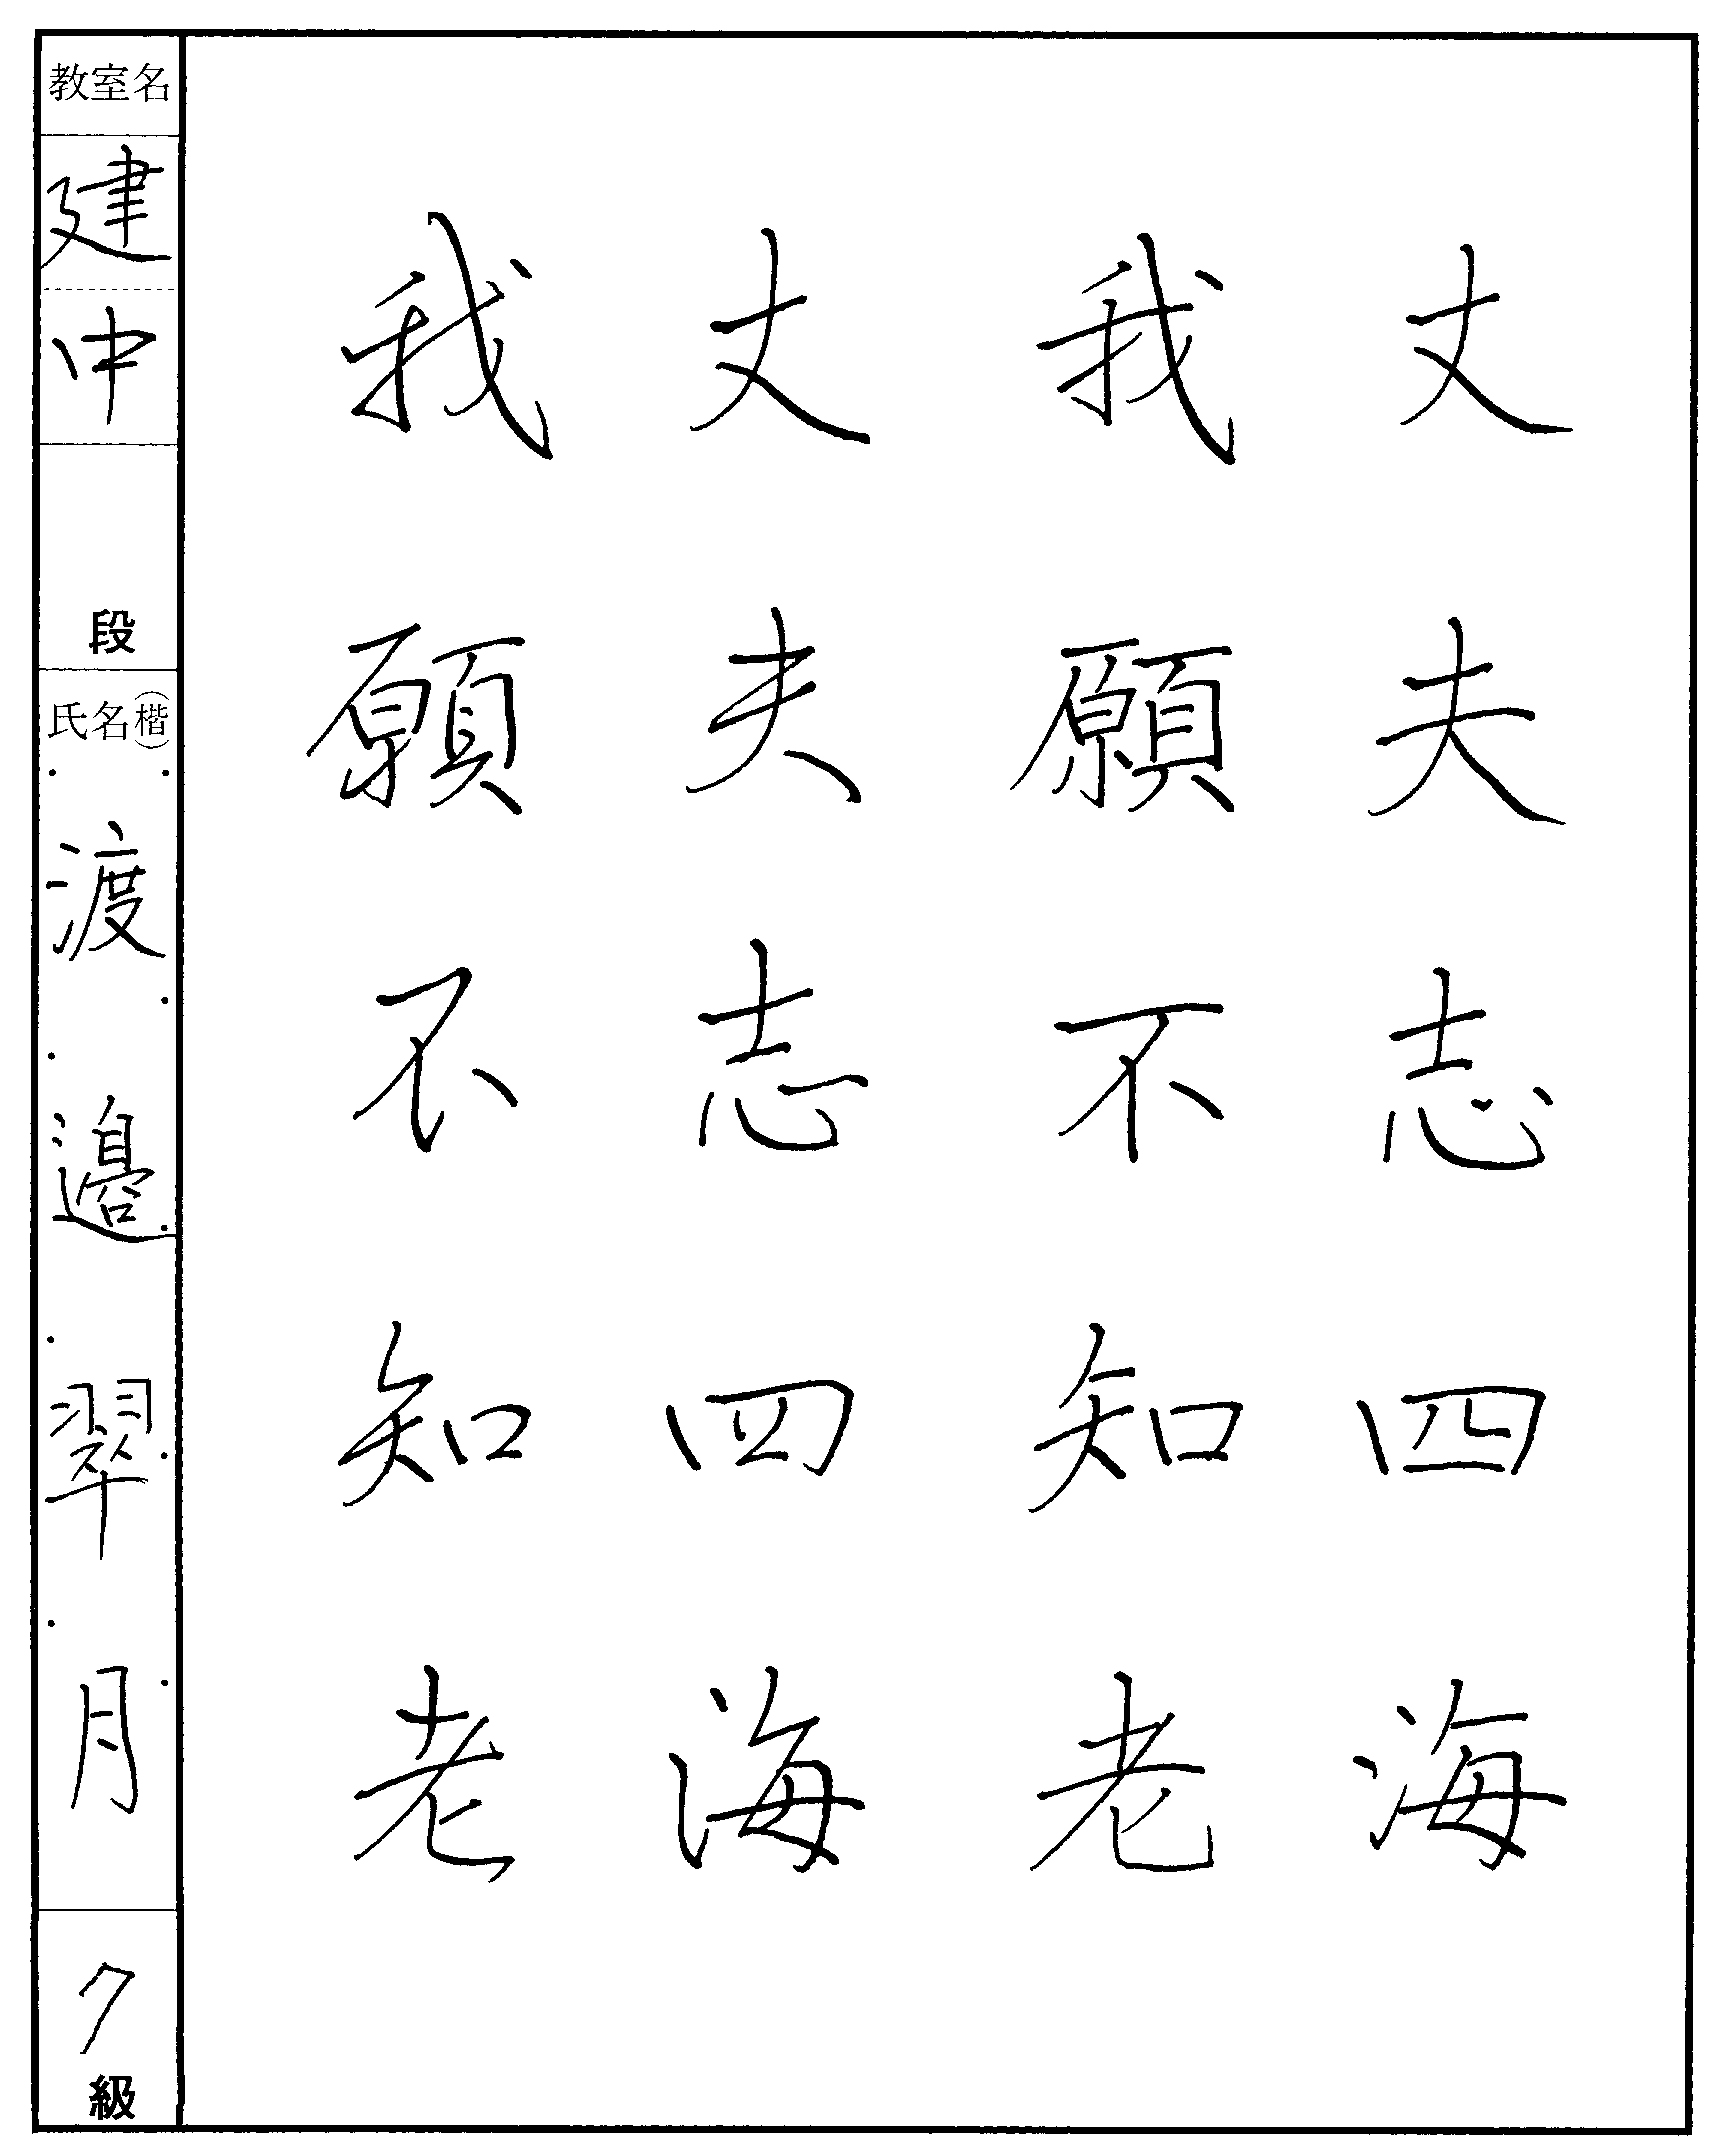 丈夫志四海
我願不知老
丈夫志四海
我願不知老
教室名
建中
段
氏名(楷)
渡邉翠月
7級